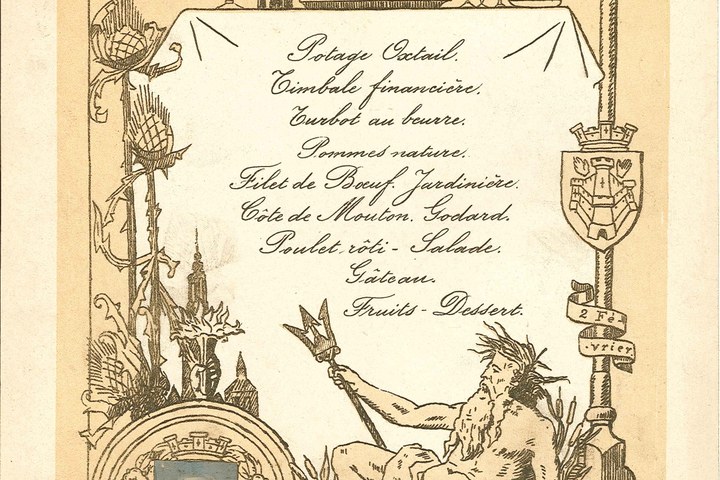 Potage Oxtail.
Timbale financière.
Turbot au beurre.
Pommes nature.
Filet de Bœuf. Jardinière.
Côte de Mouton. Godard.
Poulet rôti - Salade.
Gâteau.
Fruits - Dessert.
2 Fé
vrier